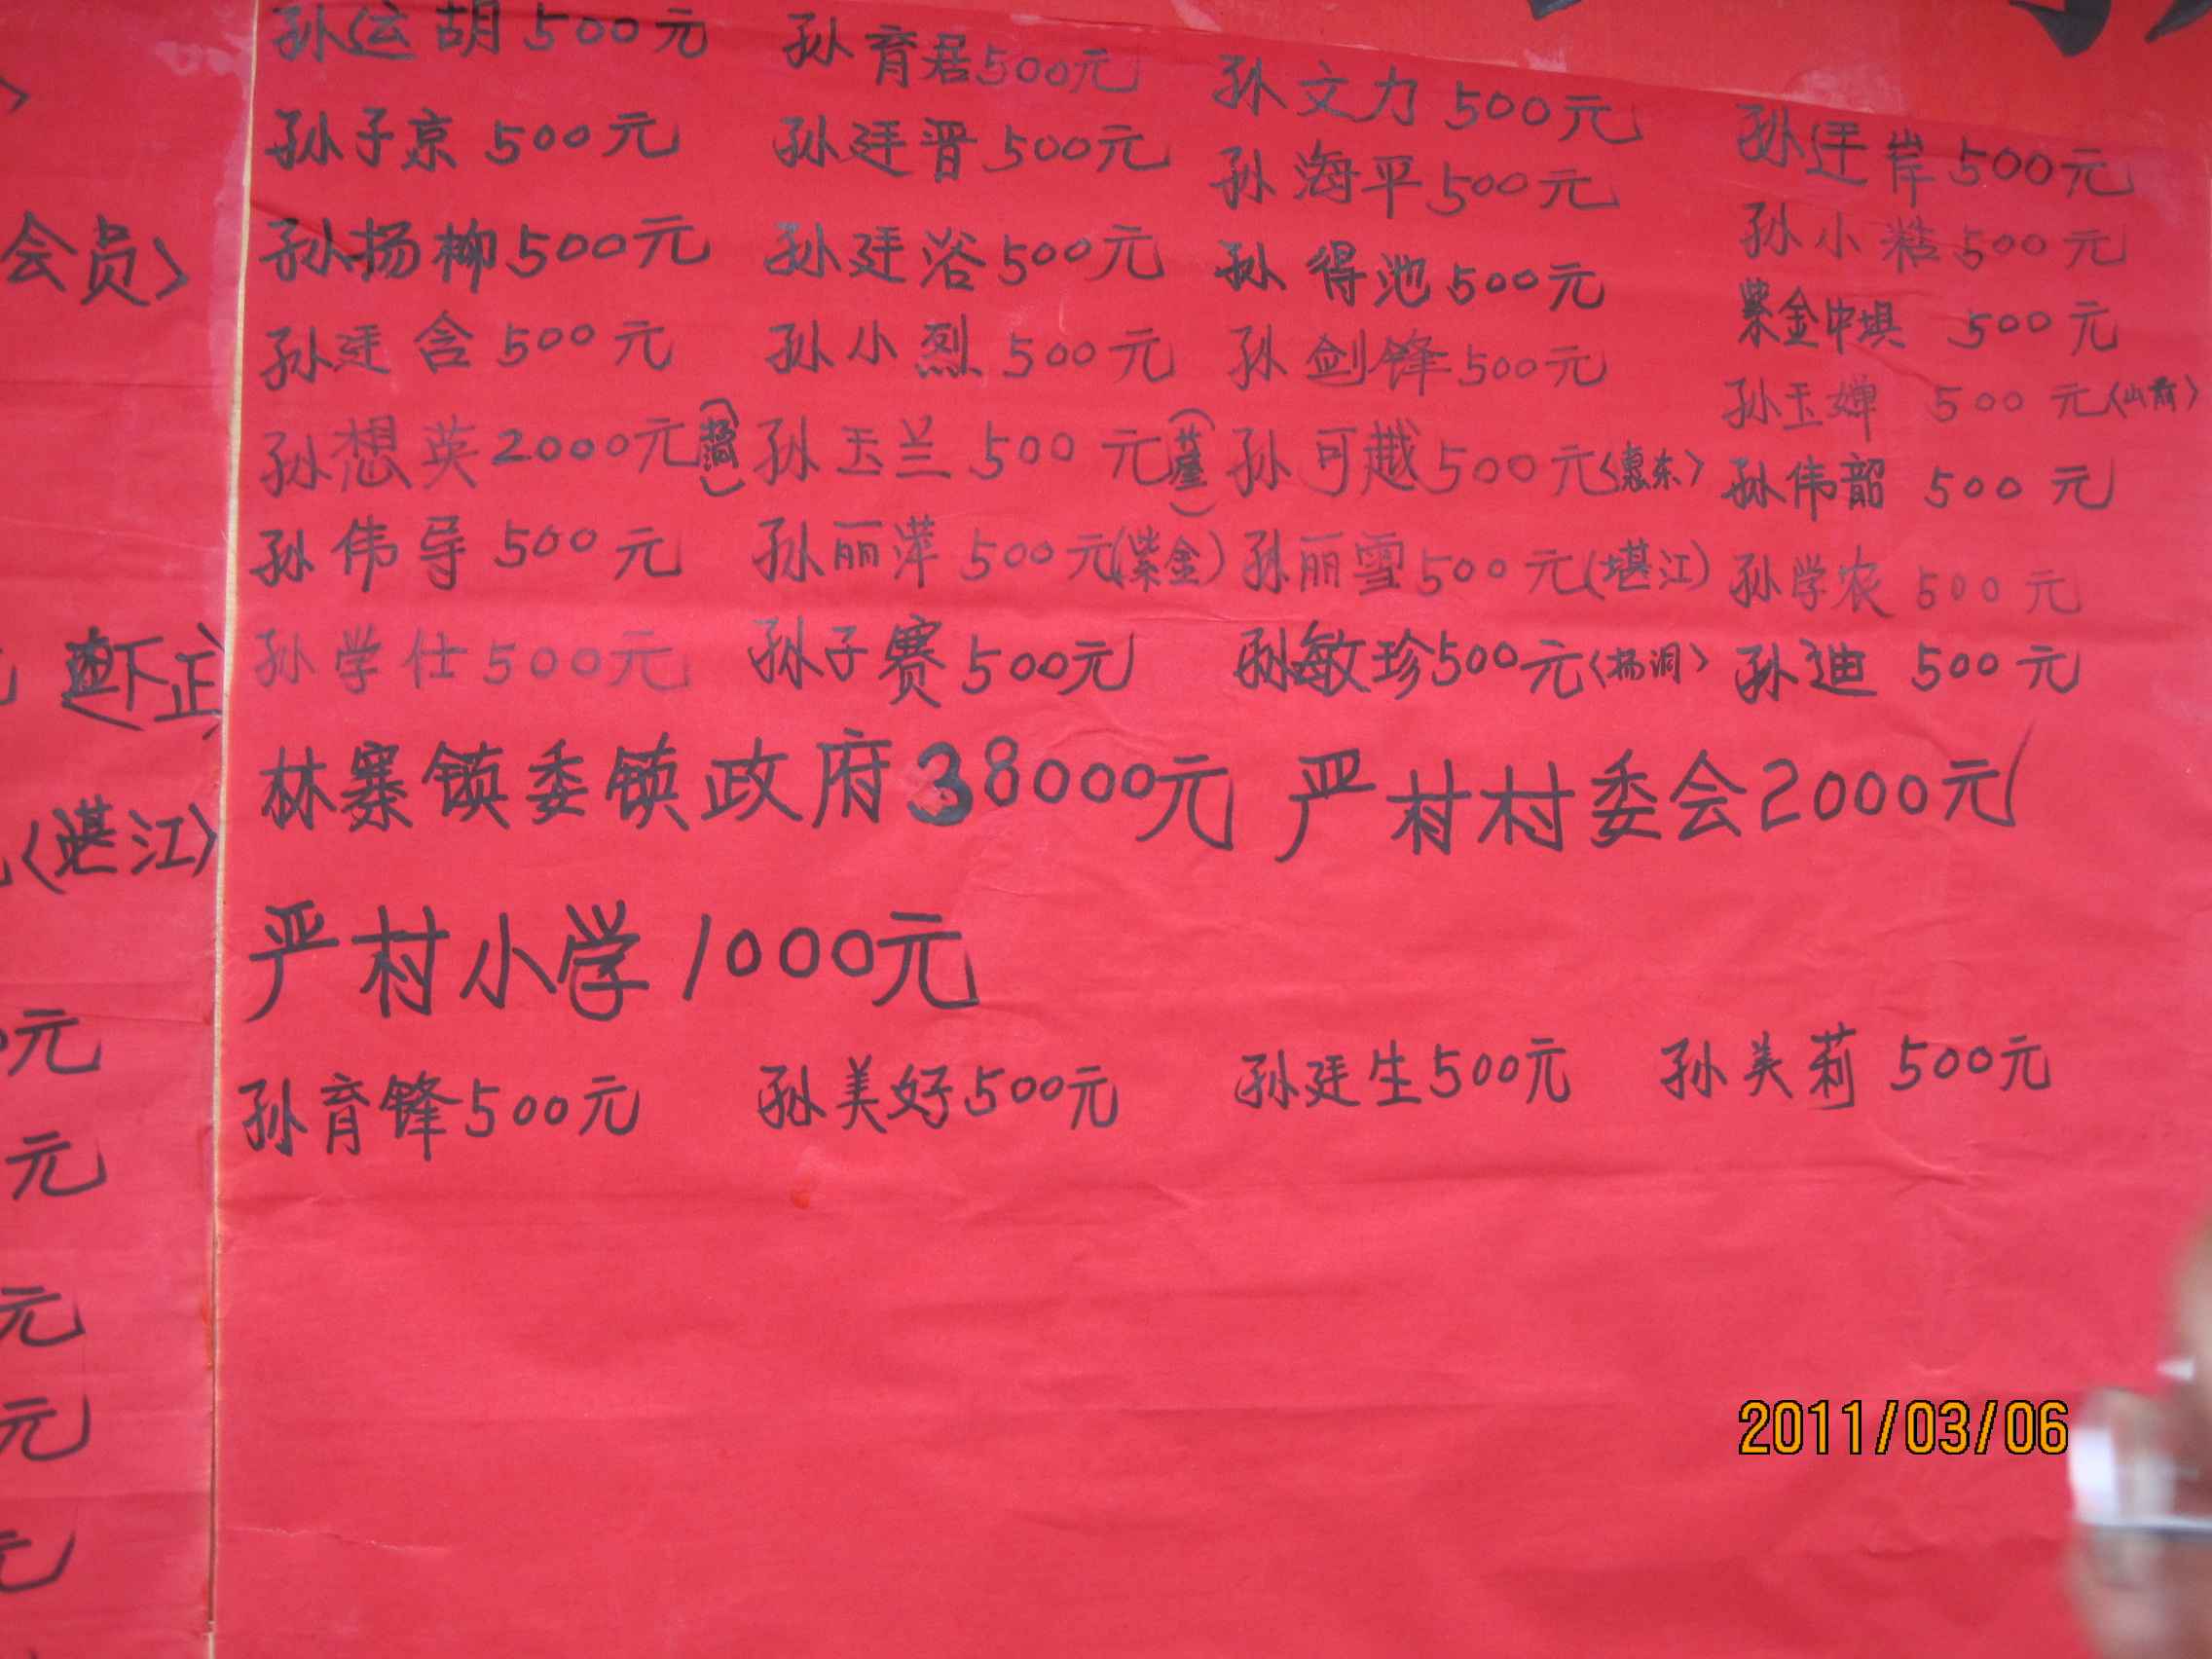 孙运胡500元 孙育君500元 孙文力500元 孙廷岸500元
孙子京500元 孙廷晋500元 孙海平500元 孙小糕500元
孙扬柳500元 孙廷浴500元 孙得池500元 紫金中坝 500元
孙廷含500元 孙小烈500元 孙剑锋500元 孙玉婵 500元〈山前〉
孙想英2000元(杨洞) 孙玉兰500元 孙可越500元〈惠东〉 孙伟韶 500元
孙伟导500元 孙丽萍500元(紫金) 孙丽雪500元(堪江) 孙学农500元
孙学仕500元 孙子赛500元 孙敏珍500元〈杨洞〉 孙迪 500元
林寨镇委镇政府38000元 严村村委会2000元
严村小学1000元
孙育锋500元 孙美好500元 孙廷生500元 孙美莉 500元
会员〉
下正
〈堪江〉
元
元
元
元
元
2011/03/06